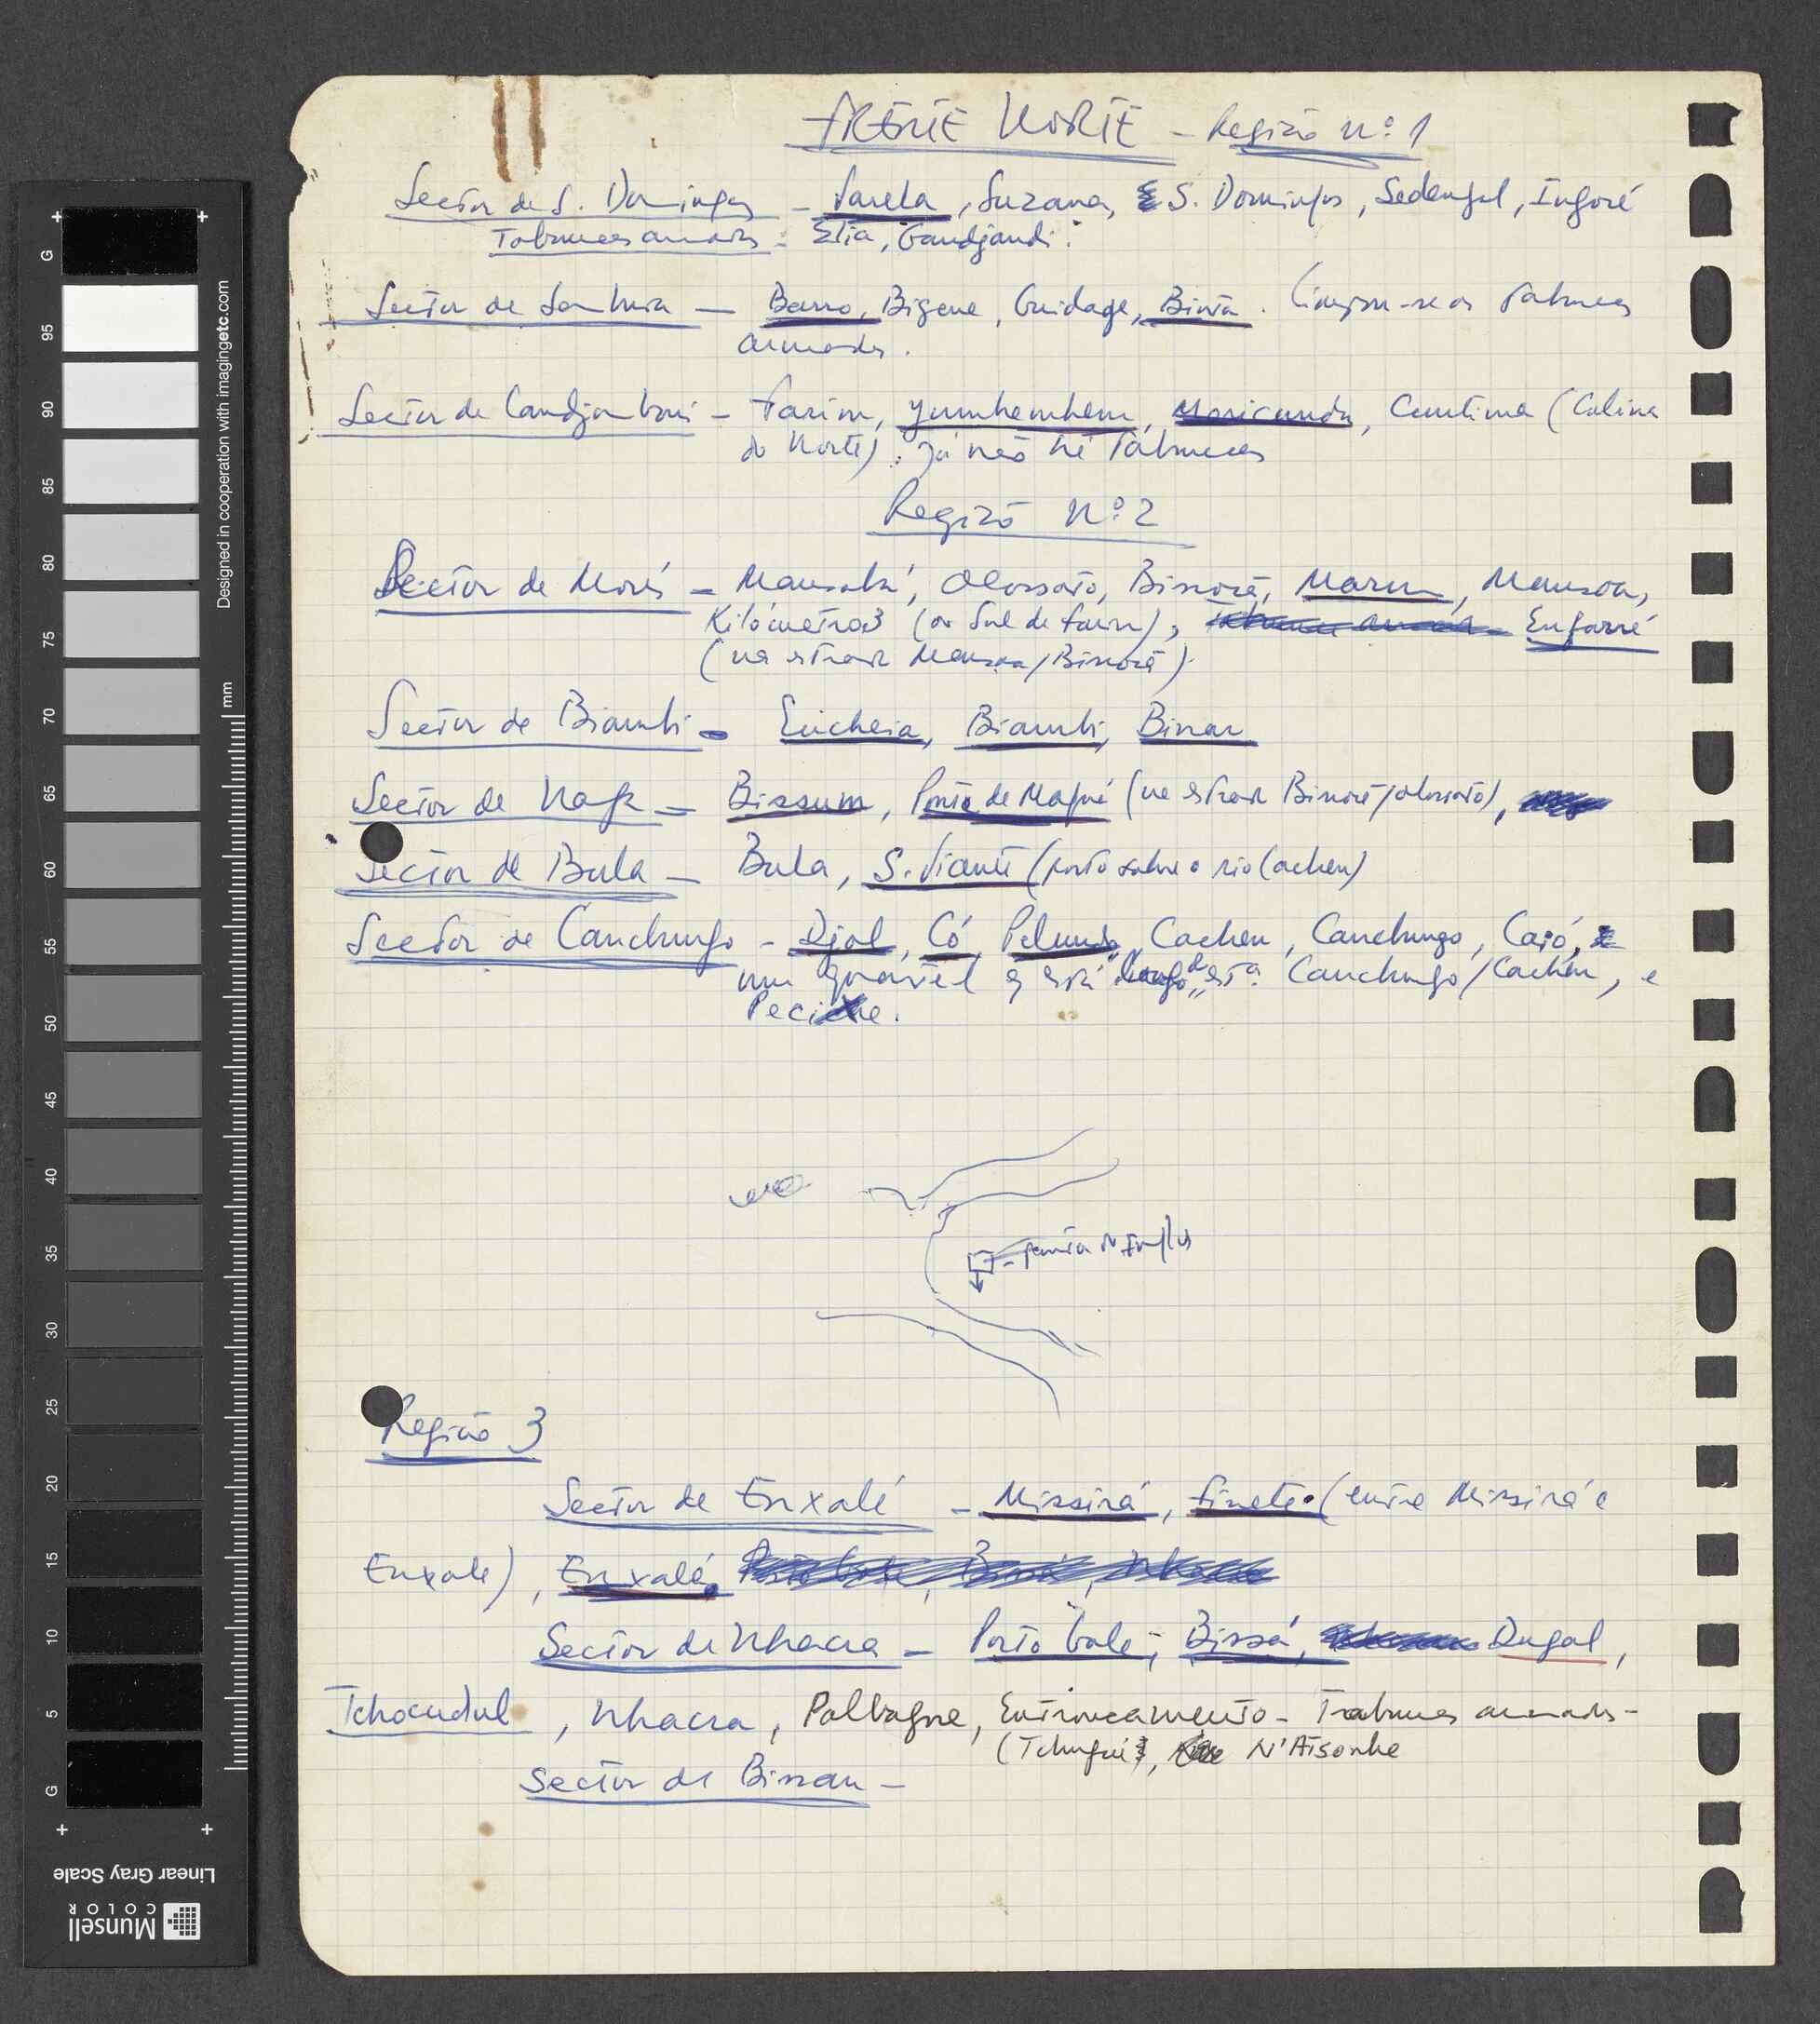 FRENTE NORTE - Região nº 1
Sector de S. Domingos - Varela, Suzana, S. Domingos, Sedengal, Ingoré
Tabancas armadas - Elia, Gandjandi.
Sector de Sambuia - Barro, Bigene, Guidage, Binta. as Tabancas
armadas.
Sector de Candjambari - Farim, Jumbembem, Canntima (Colina
do Norte). já não há Tabancas
Região nº 2
Sector de Morés - Mansabá, Olossato, Bissorã, Maru, Mansoa,
Kilómetro 3 (ao Sul de Farim), Enfarré
(na estrada Mansoa/Bissorã).
Sector de Biambi - Encheia, Biambi, Binar
Sector de Naga - Bissum, Ponte de Maqué (na estrada Bissorã/Olossato),
Sector de Bula - Bula, S. Vicente (porto sobre o rio Cacheu)
Sector de Canchungo - Djol, Có, Pelundo, Cacheu, Canchungo, Caió,
um quartel q está estª. Canchungo/Cacheu, e
Pecixe.
Região 3
Sector de Enxalé - Missirá, Finete (entre Missirá e
Enxalé), Enxalé
Sector de Nhacra - Porto Gole, Bissá, Dugal,
Tchocudul, Nhacra, Pallagne, Entroncamento - Tabancas armadas -
(Tchugué, N'Atsonhe
Sector de Bissau -
Designed in cooperation with imagingetc.com
mm
G
95
90
85
80
75
70
65
60
55
50
45
40
35
30
25
20
15
10
5
G
Linear Gray Scale
Munsell
COLOR